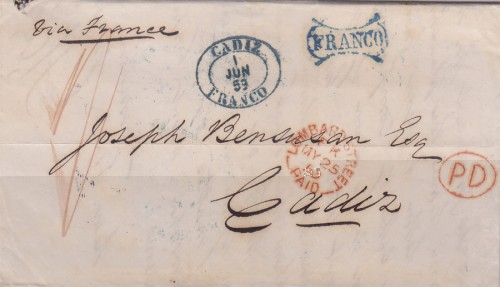 via France
CADIZ
1
JUN
59
FRANCO
FRANCO
Joseph Bensusan Esq
LOMBARD STREET
MY 25
PAID
PD
Cadiz